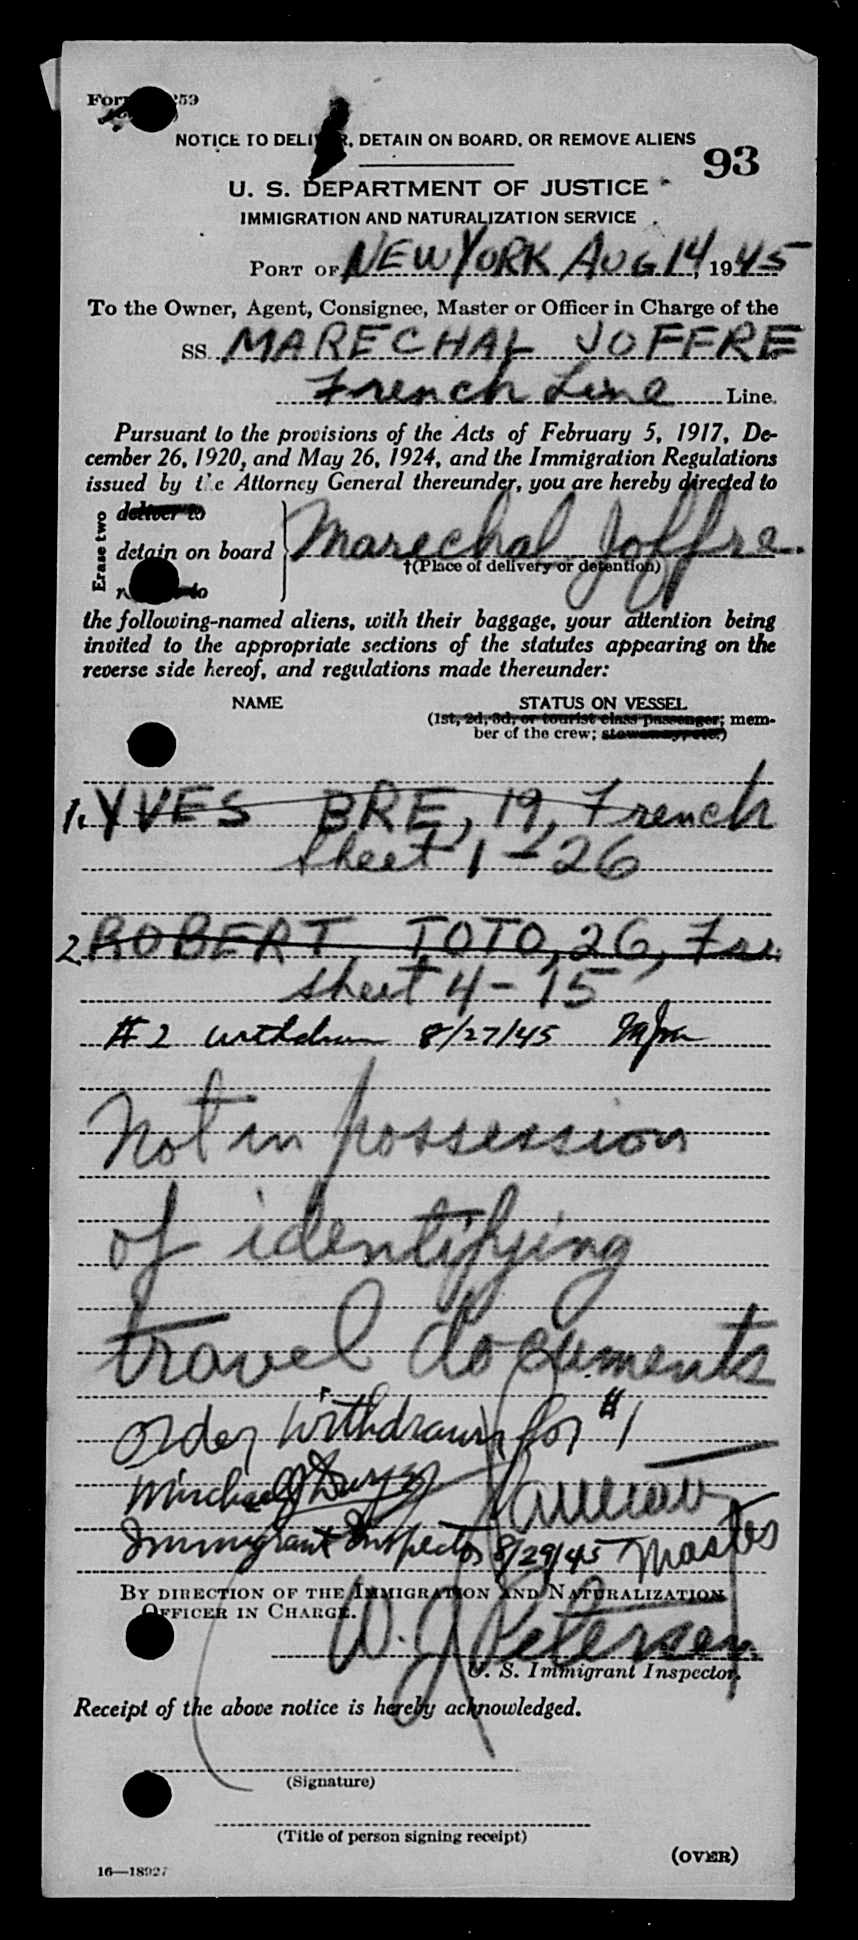 Form 259
NOTICE TO DELIVER, DETAIN ON BOARD, OR REMOVE ALIENS
93
U. S. DEPARTMENT OF JUSTICE
IMMIGRATION AND NATURALIZATION SERVICE
PORT OF NEW YORK AUG 14, 1945
To the Owner, Agent, Consignee, Master or Officer in Charge of the
SS MARECHAL JOFFRE
French Line Line.
Pursuant to the provisions of the Acts of February 5, 1917, De-
cember 26, 1920, and May 26, 1924, and the Immigration Regulations
issued by the Attorney General thereunder, you are hereby directed to
Erase two
deliver to
detain on board
Marechal Joffre.
†(Place of delivery or detention)
to
the following-named aliens, with their baggage, your attention being
invited to the appropriate sections of the statutes appearing on the
reverse side hereof, and regulations made thereunder:
NAME
STATUS ON VESSEL
(1st, 2d, 3d, or tourist class passenger; mem-
ber of the crew; stowaway, etc.)
1. YVES BRE, 19, French
sheet 1 - 26
2. ROBERT TOTO, 26, Fre.
sheet 4 - 15
#2 withdrawn 8/27/45
Not in possession
of identifying
travel documents
Order Withdrawn for #1
Immigrant Inspector 8/29/45 Master
BY DIRECTION OF THE IMMIGRATION AND NATURALIZATION
OFFICER IN CHARGE.
W. J. Petersen
U. S. Immigrant Inspector.
Receipt of the above notice is hereby acknowledged.
(Signature)
(Title of person signing receipt)
(OVER)
16—18927